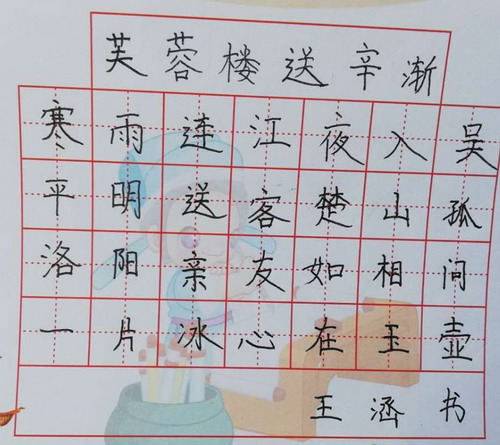 芙蓉楼送辛渐
寒雨连江夜入吴
平明送客楚山孤
洛阳亲友如相问
一片冰心在玉壶
王涵书